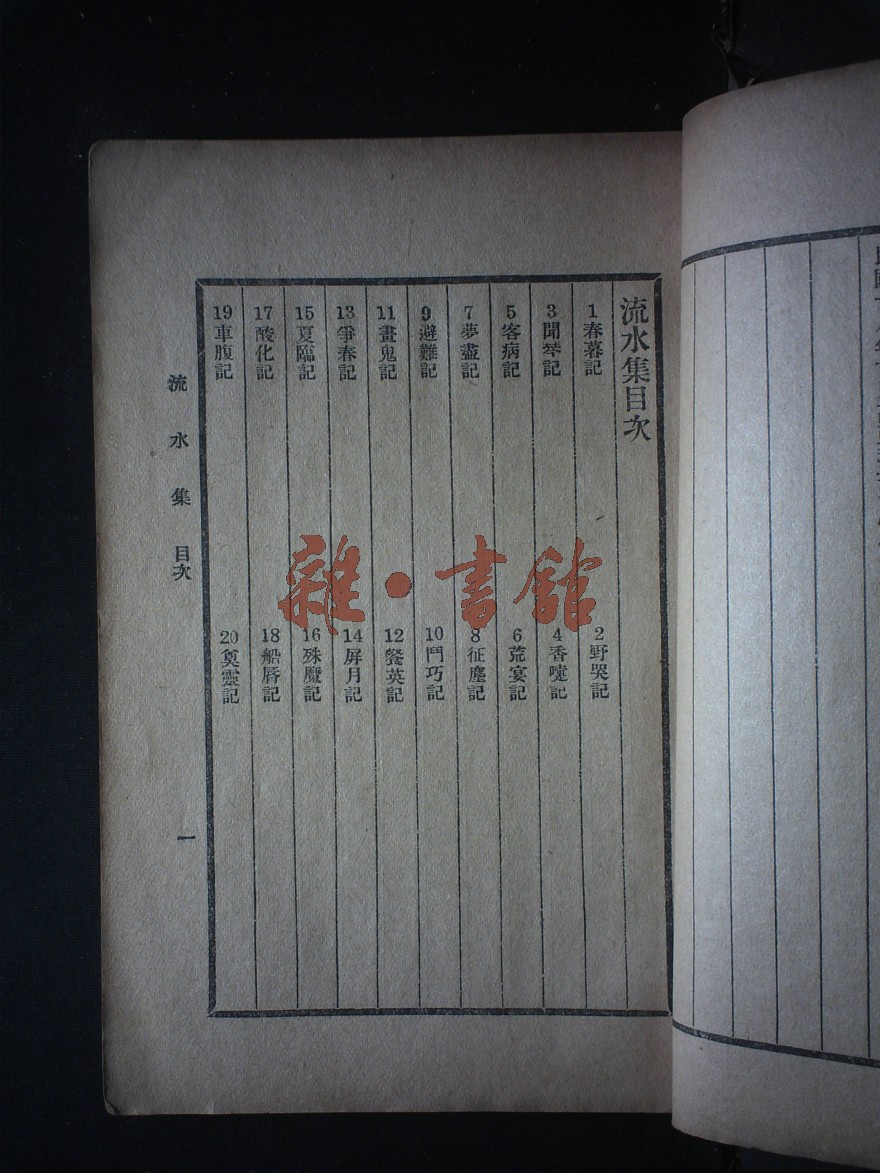 流水集目次
1 春暮記
2 野哭記
3 聞琴記
4 香嚏記
5 客病記
6 荒宴記
7 夢盡記
8 征塵記
9 避難記
10 鬥巧記
11 畫鬼記
12 餐英記
13 爭春記
14 屏月記
15 夏臨記
16 殊魘記
17 酸化記
18 船唇記
19 車腹記
20 奠靈記
流水集 目次
一
雜·書館